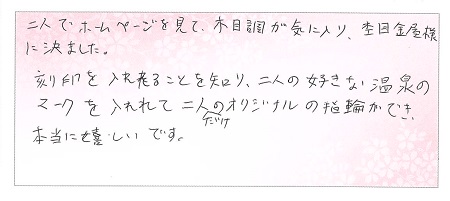 二人でホームページを見て、木目調が気に入り、杢目金屋様
に決ました。
刻印を入れれることを知り、二人の好きな温泉の
マークを入れれて二人だけのオリジナルの指輪ができ、
本当に嬉しいです。